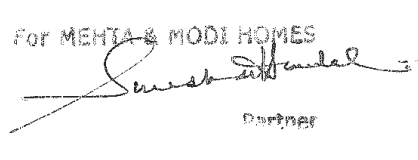 For MEHTA & MODI HOMES
Partner